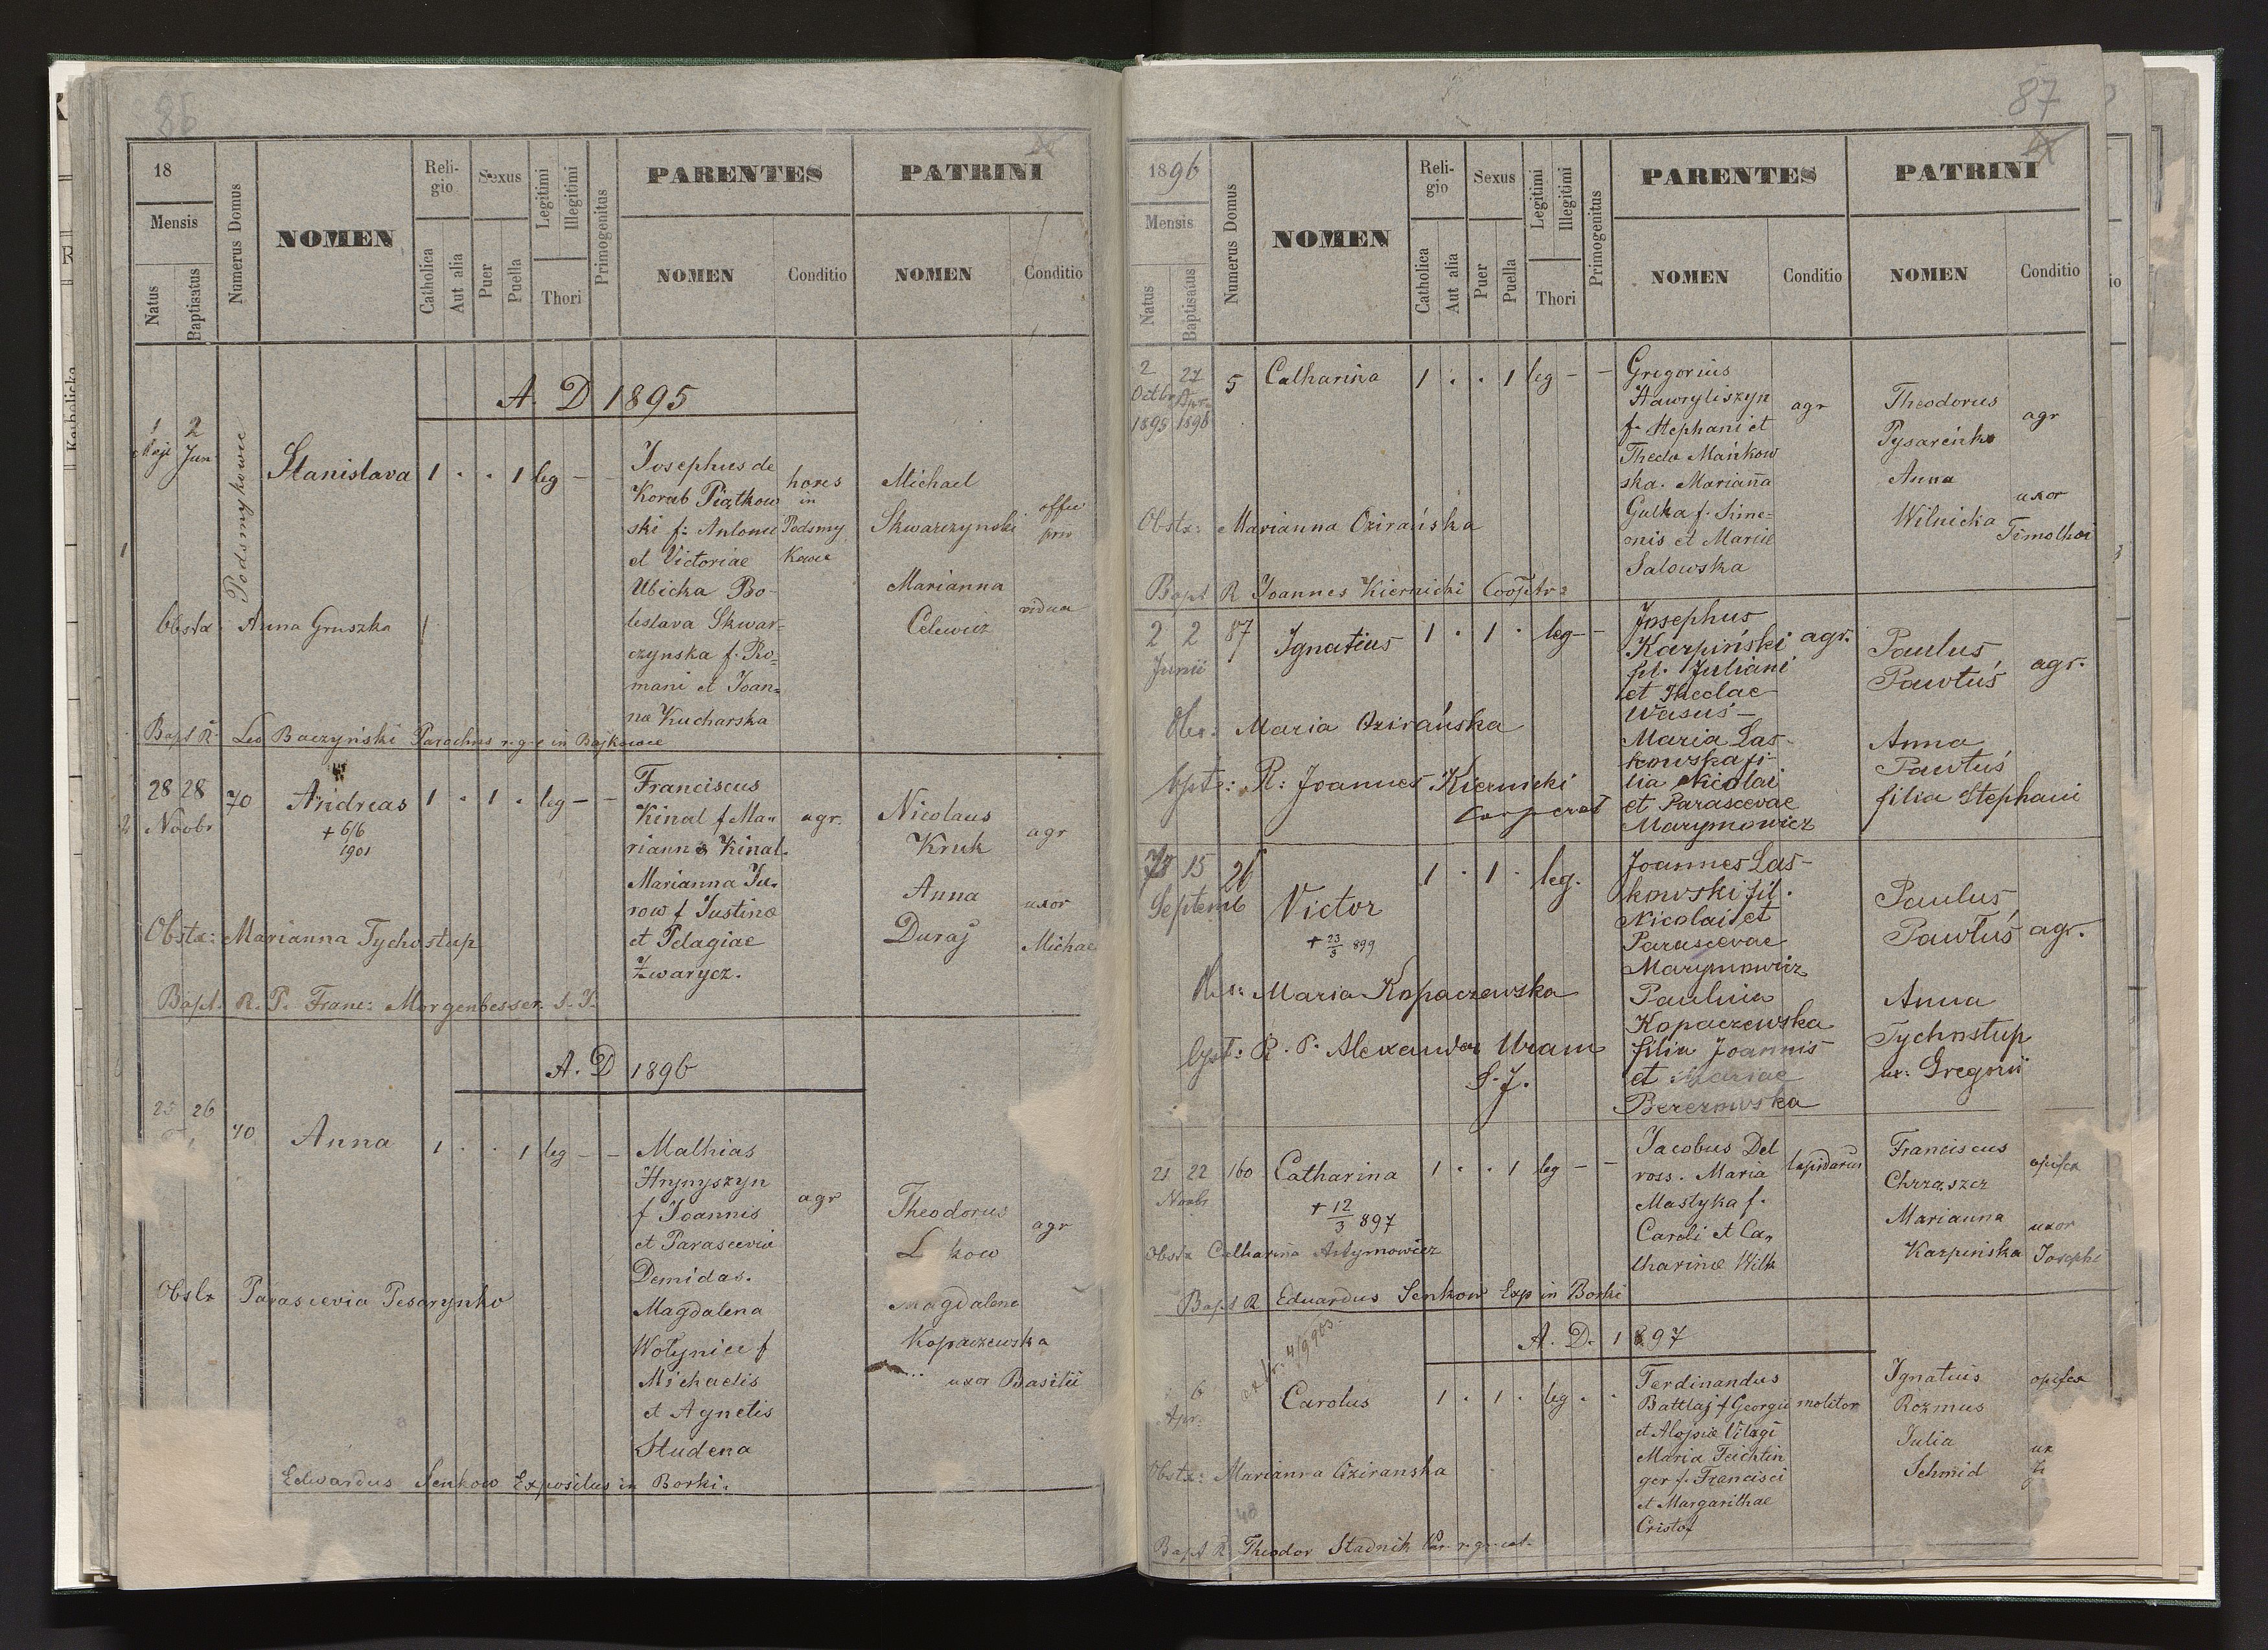 86
18
Mensis
Natus
Baptisatus
Numerus Domus
NOMEN
Religio
Catholica
Aut alia
Sexus
Puer
Puella
Legitimi
Illegitimi
Thori
Primogenitus
PARENTES
NOMEN
Conditio
PATRINI
NOMEN
Conditio
A. D 1895
1 2
Maji Jun
Podsmykowce
Stanislava 1 . . 1 leg - -
Josephus de
Korab Piątkow
ski f: Antonii
et Victoriae
Ubicka Bo-
leslava Skwar-
czynska f. Ro=
mani et Joan=
na Kucharska
in
Podsmy
kowce
Michael
Skwarczynski
Marianna
Celewicz
vidua
1
Obstx. Anna Gruszka
Bapt R. Leo Baczyński Parochus r. g. c in Bajkowce
28 28 70 Andreas 1 . 1 . leg - -
2 Novbr
+ 6/6
1901
Franciscus
Kinal f Ma=
riannæ Kinal.
Marianna Ju=
row f Justinæ
et Pelagiae
Zwarycz.
agr.
Nicolaus
Kruk
agr
Anna
Duraj
uxor
Michae
Obstx: Marianna Tychostup
Bapt. R. P. Franc: Morgenbesser. S. J.
A. D 1896
25 26 70 Anna 1 . . 1 leg - -
Mathias
Hrynyszyn
f Joannis
et Parascevia
Demidas.
Magdalena
Wołyniec f
Michaelis
et Agnetis
Studena
agr
Theodorus
agr
Magdalena
Kopaczewska
uxor Basilii
Obstx Parascevia Pesarynko
Edwardus Senkow Expositus in Borki.
87
1896
Mensis
Natus
Baptisatus
Numerus Domus
NOMEN
Religio
Catholica
Aut alia
Sexus
Puer
Puella
Legitimi
Illegitimi
Thori
Primogenitus
PARENTES
NOMEN
Conditio
PATRINI
NOMEN
Conditio
2 27 5 Catharina 1 . . 1 leg - -
Octbr Apr.
1895 1896
Gregorius
Hawryliszyn
f. Stephani et
Theda Mańkow
ska. Marianna
Gulka f. Sime-
onis et Mariæ
Salowska
agr
Theodorus
Pysareńko
agr
Anna
Wilnicka
uxor
Timothei
Obstx: Marianna Ozirańska
Bapt R Joannes Kiernicki Cooptr=
2 2 87 Ignatius 1 . 1 . leg - -
Junii
Josephus
Karpiński
fil. Juliani
et Theclae
Wasuś -
Maria Las-
kowska fi-
lia Nicolai
et Parascevae
Marymowicz
agr.
Paulus
Pawłuś
agr.
Anna
Pawłuś
filia Stephani
Obs: Maria Ozirańska
bpt: R: Joannes Kiernicki
Cooperat
15 26 Victor 1 . 1 . leg.
Septemb
+ 23/3 899
Joannes Las-
kowski fil.
Nicolai et
Parascevae
Marymowicz
Paulina
Kopaczewska
filia Joannis
et Mariae
Berezowska
Paulus
Pawłuś agr.
Anna
Tychostup
ux: Gregorii
Obs: Maria Kopaczewska
bpt: R. P. Alexander Mram
S. J.
21 22 160 Catharina 1 . . 1 leg - -
Novbr
+ 12/3 897
Jacobus Del
ross. Maria
Mastyka f.
Caroli et Ca=
tharinæ Wilk
lapidarius
Franciscus
Chrząszcz
opifex
Marianna
Karpińska
uxor
Josephi
Obstx Catharina Artymowicz
Bapt R Eduardus Senkow Exp in Borki
A. D. 1897
ex tr. 4/9 903.
6
Apr.
Carolus 1 . 1 . leg . .
Ferdinandus
Battlaj f Georgii
et Aloysiæ Vilagi
Maria Feichtin
ger f. Francisci
et Margarithae
Cristof
molitor
Ignatius
Rozmus
opifex
Julia
Schmid
ux
Obstx: Marianna Oziranska
48
Bapt R. Theodor Stadnik Par. r. gr. cat.